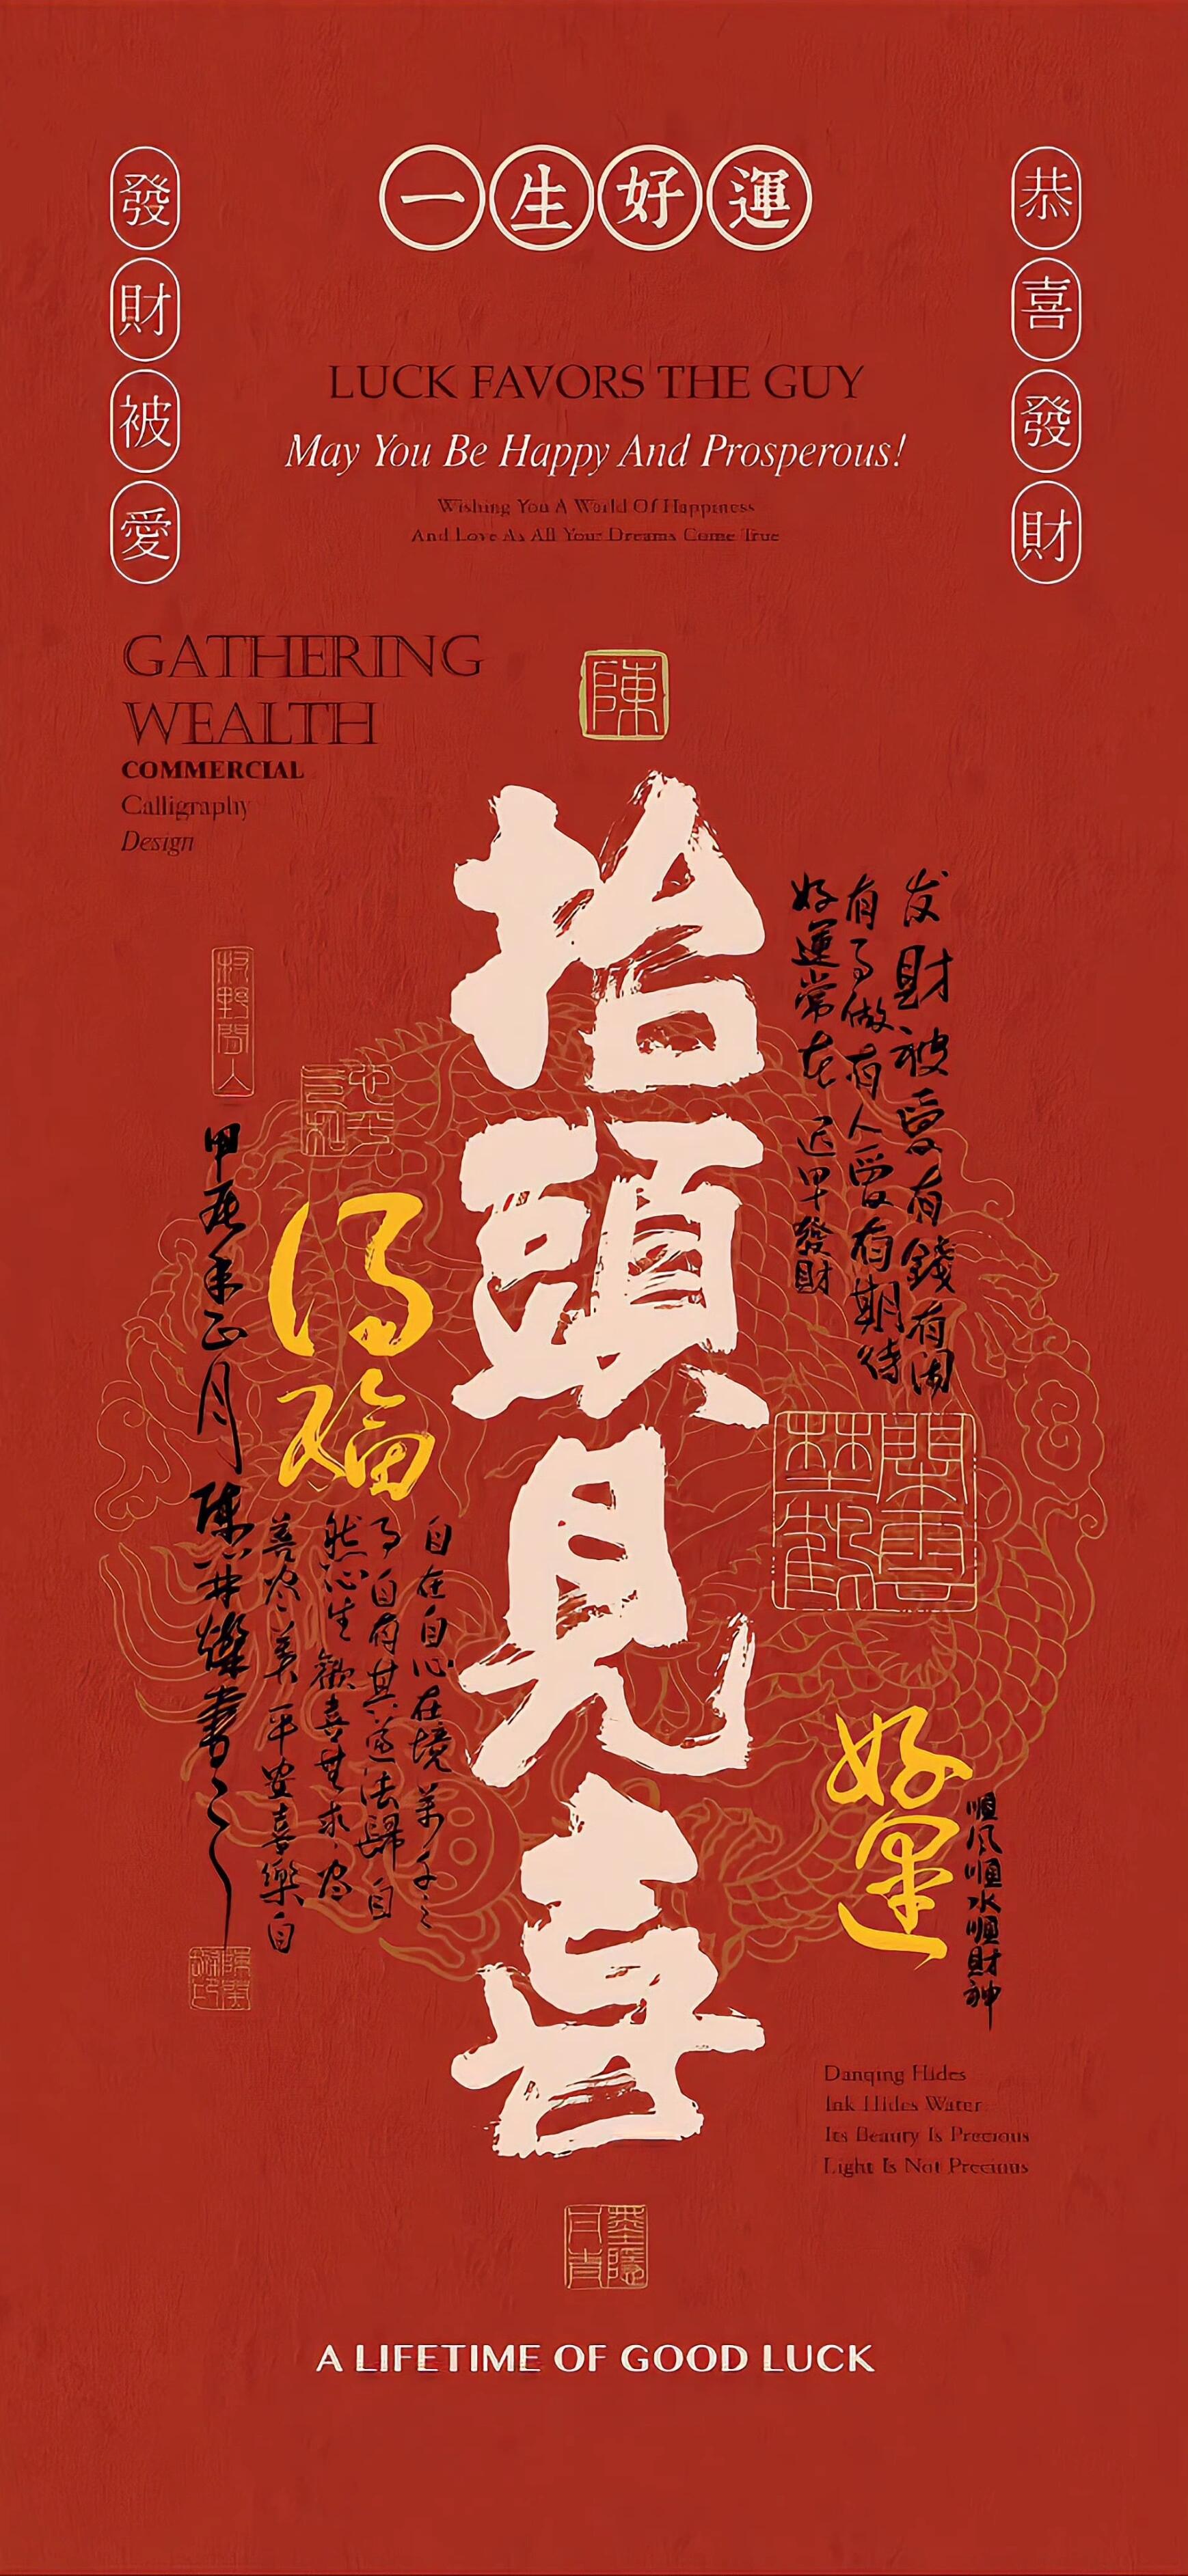 一生好運
恭喜發財
發財被愛
LUCK FAVORS THE GUY
May You Be Happy And Prosperous!
Wishing You A World Of Happiness
And Love As All Your Dreams Come True
GATHERING
WEALTH
COMMERCIAL
Calligraphy
Design
陳
抬頭見喜
发財被愛有錢有闲
有了做有人愛有期待
好運常在 迟早發財
好運
順风順水順財神
自在自心在境
自有其道法歸自
然心生歡喜無求為
善尽美 平安喜樂自
福
甲辰年正月
Danqing Hides
Ink Hides Water
Its Beauty Is Precious
Light Is Not Precious
A LIFETIME OF GOOD LUCK